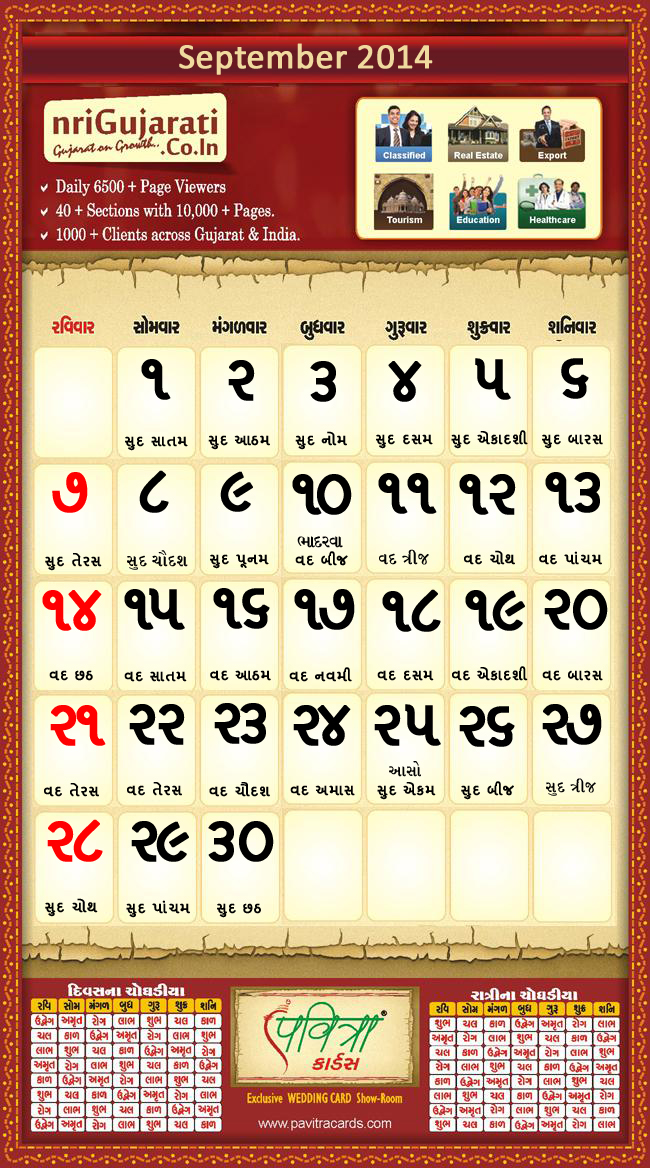 September 2014
nriGujarati
Gujarat on Growth..
.Co.In
Daily 6500 + Page Viewers
40 + Sections with 10,000 + Pages.
1000 + Clients across Gujarat & India.
Classified Real Estate Export
Tourism Education Healthcare
રવિવાર સોમવાર મંગળવાર બુધવાર ગુરૂવાર શુક્રવાર શનિવાર
૧ ૨ ૩ ૪ ૫ ૬
સુદ સાતમ સુદ આઠમ સુદ નોમ સુદ દસમ સુદ એકાદશી સુદ બારસ
૭ ૮ ૯ ૧૦ ૧૧ ૧૨ ૧૩
ભાદરવા
સુદ તેરસ સુદ ચૌદશ સુદ પૂનમ વદ બીજ વદ ત્રીજ વદ ચોથ વદ પાંચમ
૧૪ ૧૫ ૧૬ ૧૭ ૧૮ ૧૯ ૨૦
વદ છઠ વદ સાતમ વદ આઠમ વદ નવમી વદ દસમ વદ એકાદશી વદ બારસ
૨૧ ૨૨ ૨૩ ૨૪ ૨૫ ૨૬ ૨૭
આસો
વદ તેરસ વદ તેરસ વદ ચૌદશ વદ અમાસ સુદ એકમ સુદ બીજ સુદ ત્રીજ
૨૮ ૨૯ ૩૦
સુદ ચોથ સુદ પાંચમ સુદ છઠ
દિવસના ચોઘડીયા
રવિ સોમ મંગળ બુધ ગુરૂ શુક્ર શનિ
ઉદ્વેગ અમૃત રોગ લાભ શુભ ચલ કાળ
ચલ કાળ ઉદ્વેગ અમૃત રોગ લાભ શુભ
લાભ શુભ ચલ કાળ ઉદ્વેગ અમૃત રોગ
અમૃત રોગ લાભ શુભ ચલ કાળ ઉદ્વેગ
કાળ ઉદ્વેગ અમૃત રોગ લાભ શુભ ચલ
શુભ ચલ કાળ ઉદ્વેગ અમૃત રોગ લાભ
રોગ લાભ શુભ ચલ કાળ ઉદ્વેગ અમૃત
ઉદ્વેગ અમૃત રોગ લાભ શુભ ચલ કાળ
પવિત્રા®
કાર્ડસ
Exclusive WEDDING CARD Show-Room
www.pavitracards.com
રાત્રીના ચોઘડીયા
રવિ સોમ મંગળ બુધ ગુરૂ શુક્ર શનિ
શુભ ચલ કાળ ઉદ્વેગ અમૃત રોગ લાભ
અમૃત રોગ લાભ શુભ ચલ કાળ ઉદ્વેગ
ચલ કાળ ઉદ્વેગ અમૃત રોગ લાભ શુભ
રોગ લાભ શુભ ચલ કાળ ઉદ્વેગ અમૃત
કાળ ઉદ્વેગ અમૃત રોગ લાભ શુભ ચલ
લાભ શુભ ચલ કાળ ઉદ્વેગ અમૃત રોગ
ઉદ્વેગ અમૃત રોગ લાભ શુભ ચલ કાળ
શુભ ચલ કાળ ઉદ્વેગ અમૃત રોગ લાભ